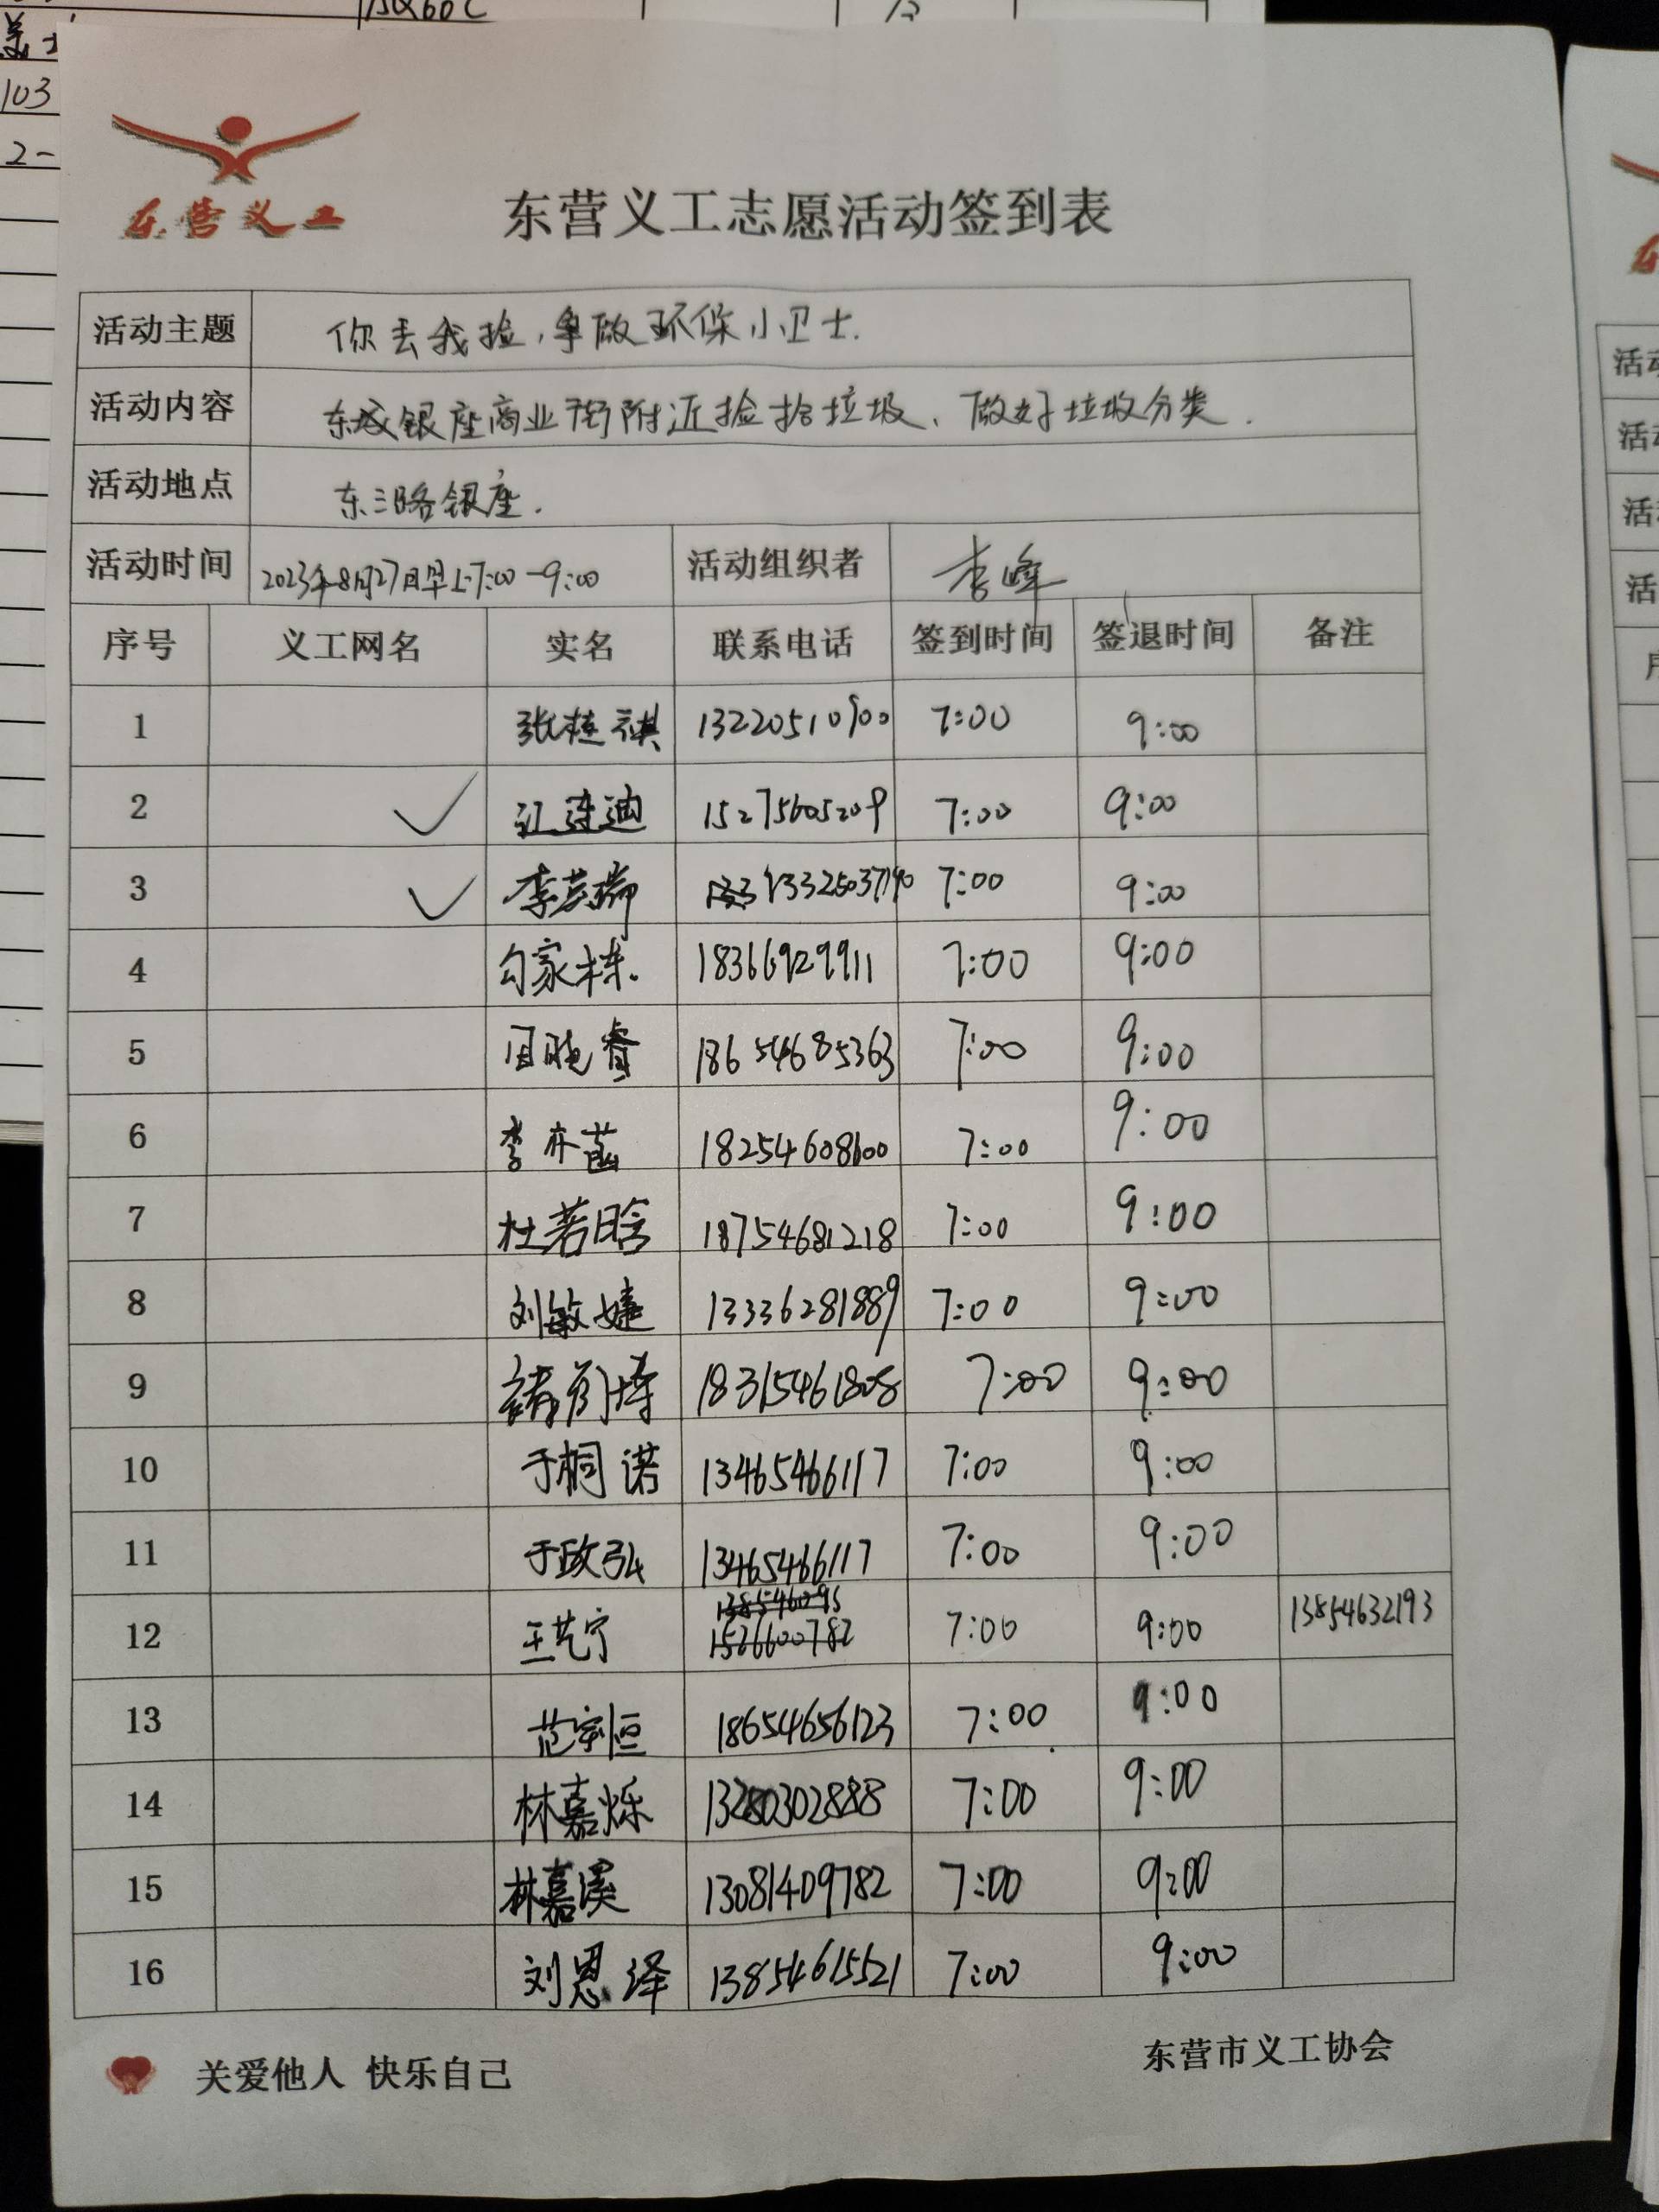 103
2-
东营义工
东营义工志愿活动签到表
活动主题 你丢我捡,争做环保小卫士.
活动内容 东城银座商业街附近捡拾垃圾、做好垃圾分类.
活动地点 东三路银座.
活动时间 2023年8月27日早上7:00-9:00 活动组织者 李峰
序号 义工网名 实名 联系电话 签到时间 签退时间 备注
1 张桂祺 13220510900 7:00 9:00
2 ✓ 15275605209 7:00 9:00
3 ✓ 李芸瑞 7:00 9:00
4 勾家栋. 18366929911 7:00 9:00
5 18654685363 7:00 9:00
6 李亦菡 18254608600 7:00 9:00
7 杜若晗 18754681218 7:00 9:00
8 刘敏婕 13336281889 7:00 9:00
9 18315461808 7:00 9:00
10 于桐诺 13465466117 7:00 9:00
11 于政弘 13465466117 7:00 9:00
12 王艺宁 7:00 9:00 13854632193
13 范家恒 18654656123 7:00 9:00
14 林嘉烁 13280302888 7:00 9:00
15 林嘉溪 13081409782 7:00 9:00
16 刘恩泽 13854615521 7:00 9:00
关爱他人 快乐自己
东营市义工协会